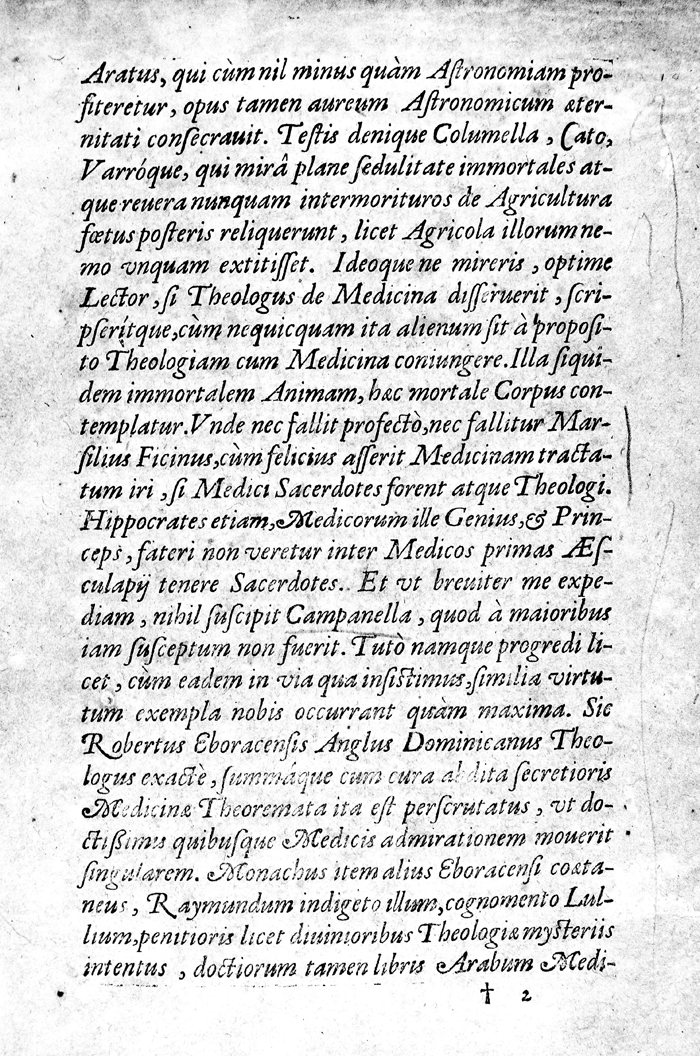 Aratus, qui cùm nil minus quàm Aſtronomiam pro-
fiteretur, opus tamen aureum Aſtronomicum æter-
nitati conſecrauit. Teſtis denique Columella, Cato,
Varróque, qui mirâ plane ſedulitate immortales at-
que reuera nunquam intermorituros de Agricultura
fœtus poſteris reliquerunt, licet Agricola illorum ne-
mo vnquam extitiſſet. Ideoque ne mireris, optime
Lector, ſi Theologus de Medicina diſſeruerit, ſcri-
pſerítque, cùm nequicquam ita alienum ſit à propoſi-
to Theologiam cum Medicina coniungere. Illa ſiqui-
dem immortalem Animam, hæc mortale Corpus con-
templatur. Vnde nec fallit profectò, nec fallitur Mar-
ſilius Ficinus, cùm felicius aſſerit Medicinam tracta-
tum iri, ſi Medici Sacerdotes forent atque Theologi.
Hippocrates etiam, Medicorum ille Genius, & Prin-
ceps, fateri non veretur inter Medicos primas Æſ-
culapij tenere Sacerdotes. Et vt breuiter me expe-
diam, nihil ſuſcipit Campanella, quod à maioribus
iam ſuſceptum non fuerit. Tutò namque progredi li-
cet, cùm eadem in via qua inſiſtimus, ſimilia virtu-
tum exempla nobis occurrant quàm maxima. Sic
Robertus Eboracenſis Anglus Dominicanus Theo-
logus exactè, ſummáque cum cura abdita ſecretioris
Medicinæ Theoremata ita eſt perſcrutatus, vt do-
ctiſsimis quibuſque Medicis admirationem mouerit
ſingularem. Monachus item alius Eboracenſi coæta-
neus, Raymundum indigeto illum, cognomento Lul-
lium, penitioris licet diuinioribus Theologiæ myſteriis
intentus, doctiorum tamen libris Arabum Medi-
† 2